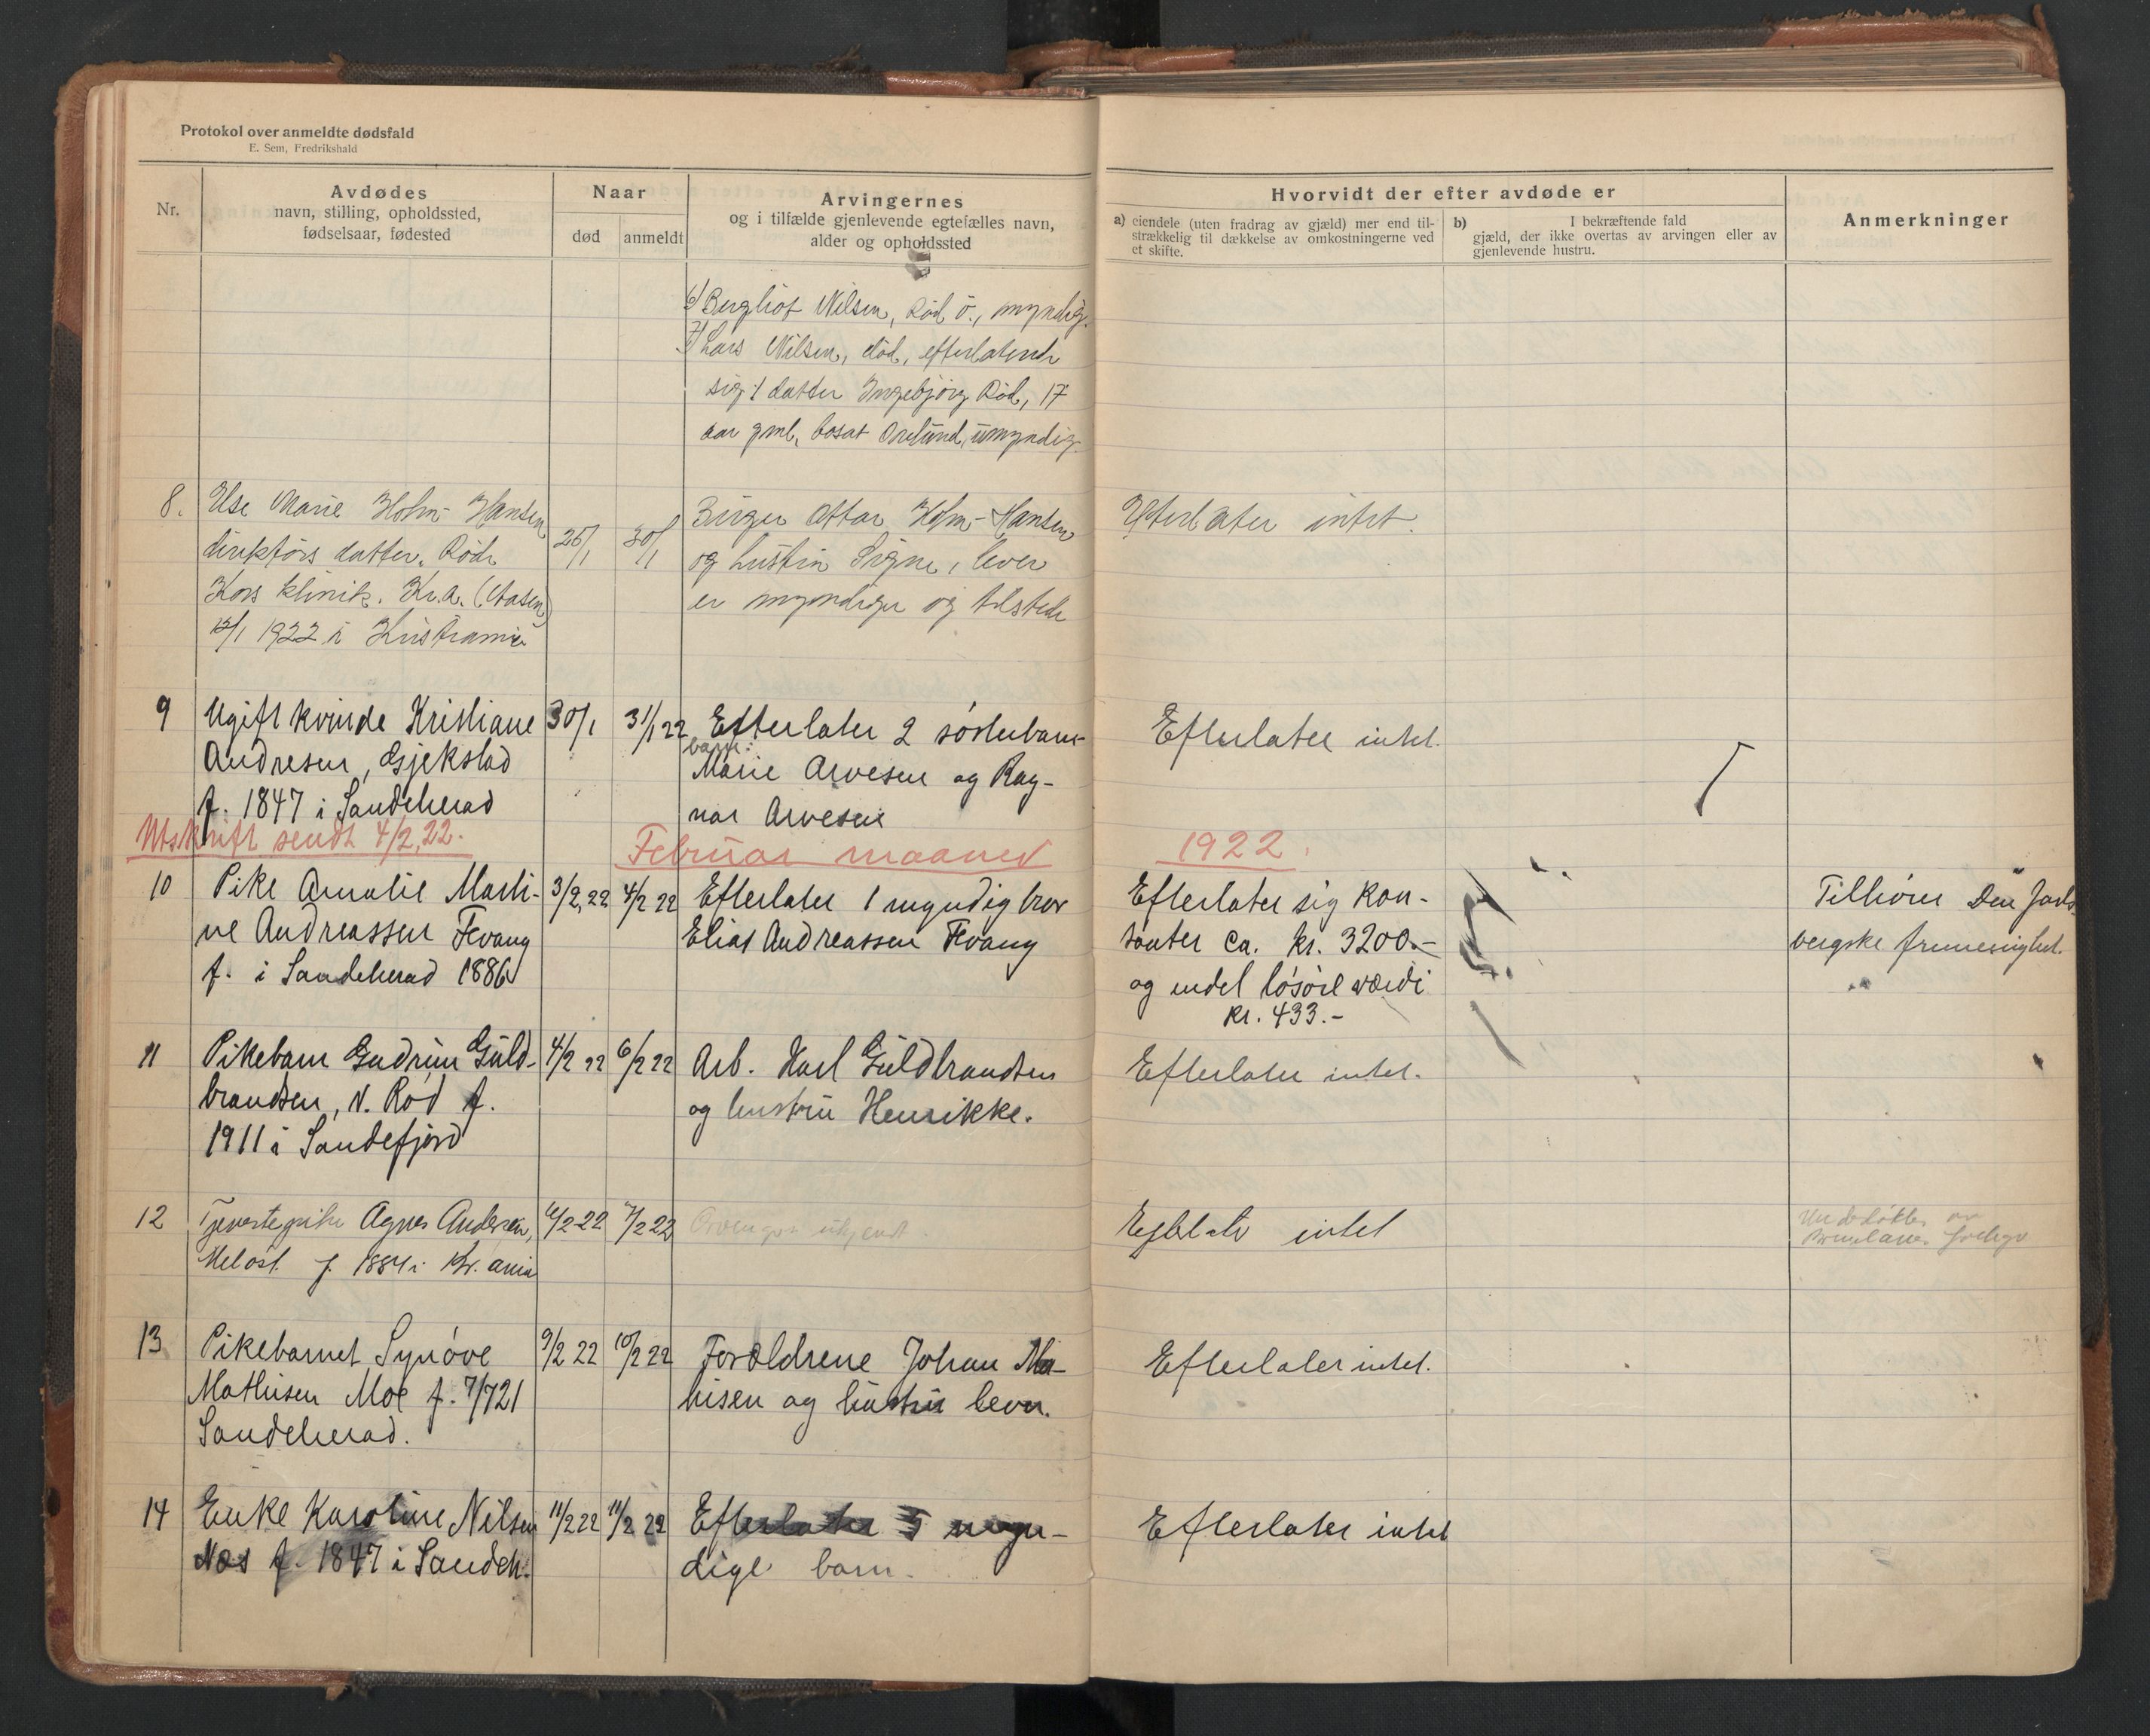 Protokol over anmeldte dødsfald
E. Sem, Fredrikshald
Nr.
Avdødes
navn, stilling, opholdssted,
fødselsaar, fødested
Naar
død
anmeldt
Arvingernes
og i tilfælde gjenlevende egtefælles navn,
alder og opholdssted
Hvorvidt der efter avdøde er
a) eiendele (uten fradrag av gjæld) mer end til-
strækkelig til dækkelse av omkostningerne ved
et skifte.
b) I bekræftende fald
gjæld, der ikke overtas av arvingen eller av
gjenlevende hustru.
Anmerkninger
6) Bergliot Nilsen, Rød ö., myndig.
7) Lars Nilsen, död, efterlatende
sig 1 datter Ingebjörg Rød, 17
aar gml, bosat Orelund, umyndig.
8.
Else Marie Holm-Hansen
direktörs datter. Röde
Kors klinik. Kr.a. (Aasen)
12/1 1922 i Kristiania
26/1
30/1
Birger Ottar Holm-Hansen
og hustru Signe, lever
er myndiger og tilstede
Efterlater intet.
9
Ugift kvinde Kristiane
Andresen, Gjekstad
f. 1847 i Sandeherad
30/1
31/1 22
Efterlater 2 søsterbarns
barn:
Marie Arvesen og Rag-
nar Arvesen
Efterlater intet.
Utskrift sendt 4/2, 22.
Februar maaned
1922.
10
Pike Amalie Marti-
ne Andreassen Fevang
f. i Sandeherad 1886
3/2, 22
4/2 22
Efterlater 1 myndig bror
Elias Andreassen Fevang
Efterlater sig kon-
tanter ca. kr. 3200.-
og endel løsøre værdi
kr. 433.-
Tilhörer Den Jarls-
bergske frimenighet.
11
Pikebarn Gudrun Guld-
brandsen, N. Rød f.
1911 i Sandefjord
4/2 22
6/2 22
Arb. Karl Guldbrandsen
og hustru Henrikke.
Efterlater intet.
12
Tjenestepike Agnes Andersen,
f. 1884 i Kr.ania
6/2 22
7/2 22
Efterlater intet
13
Pikebarnet Synøve
Mathisen Moe f. 7/7 21
Sandeherad.
9/2 22
10/2 22
Forældrene Johan Ma-
hisen og hustru lever.
Efterlater intet.
14
Enke Karoline Nilsen
Næs f. 1847 i Sandeh.
11/2 22
11/2 22
Efterlater 5 myn-
dige barn.
Efterlater intet